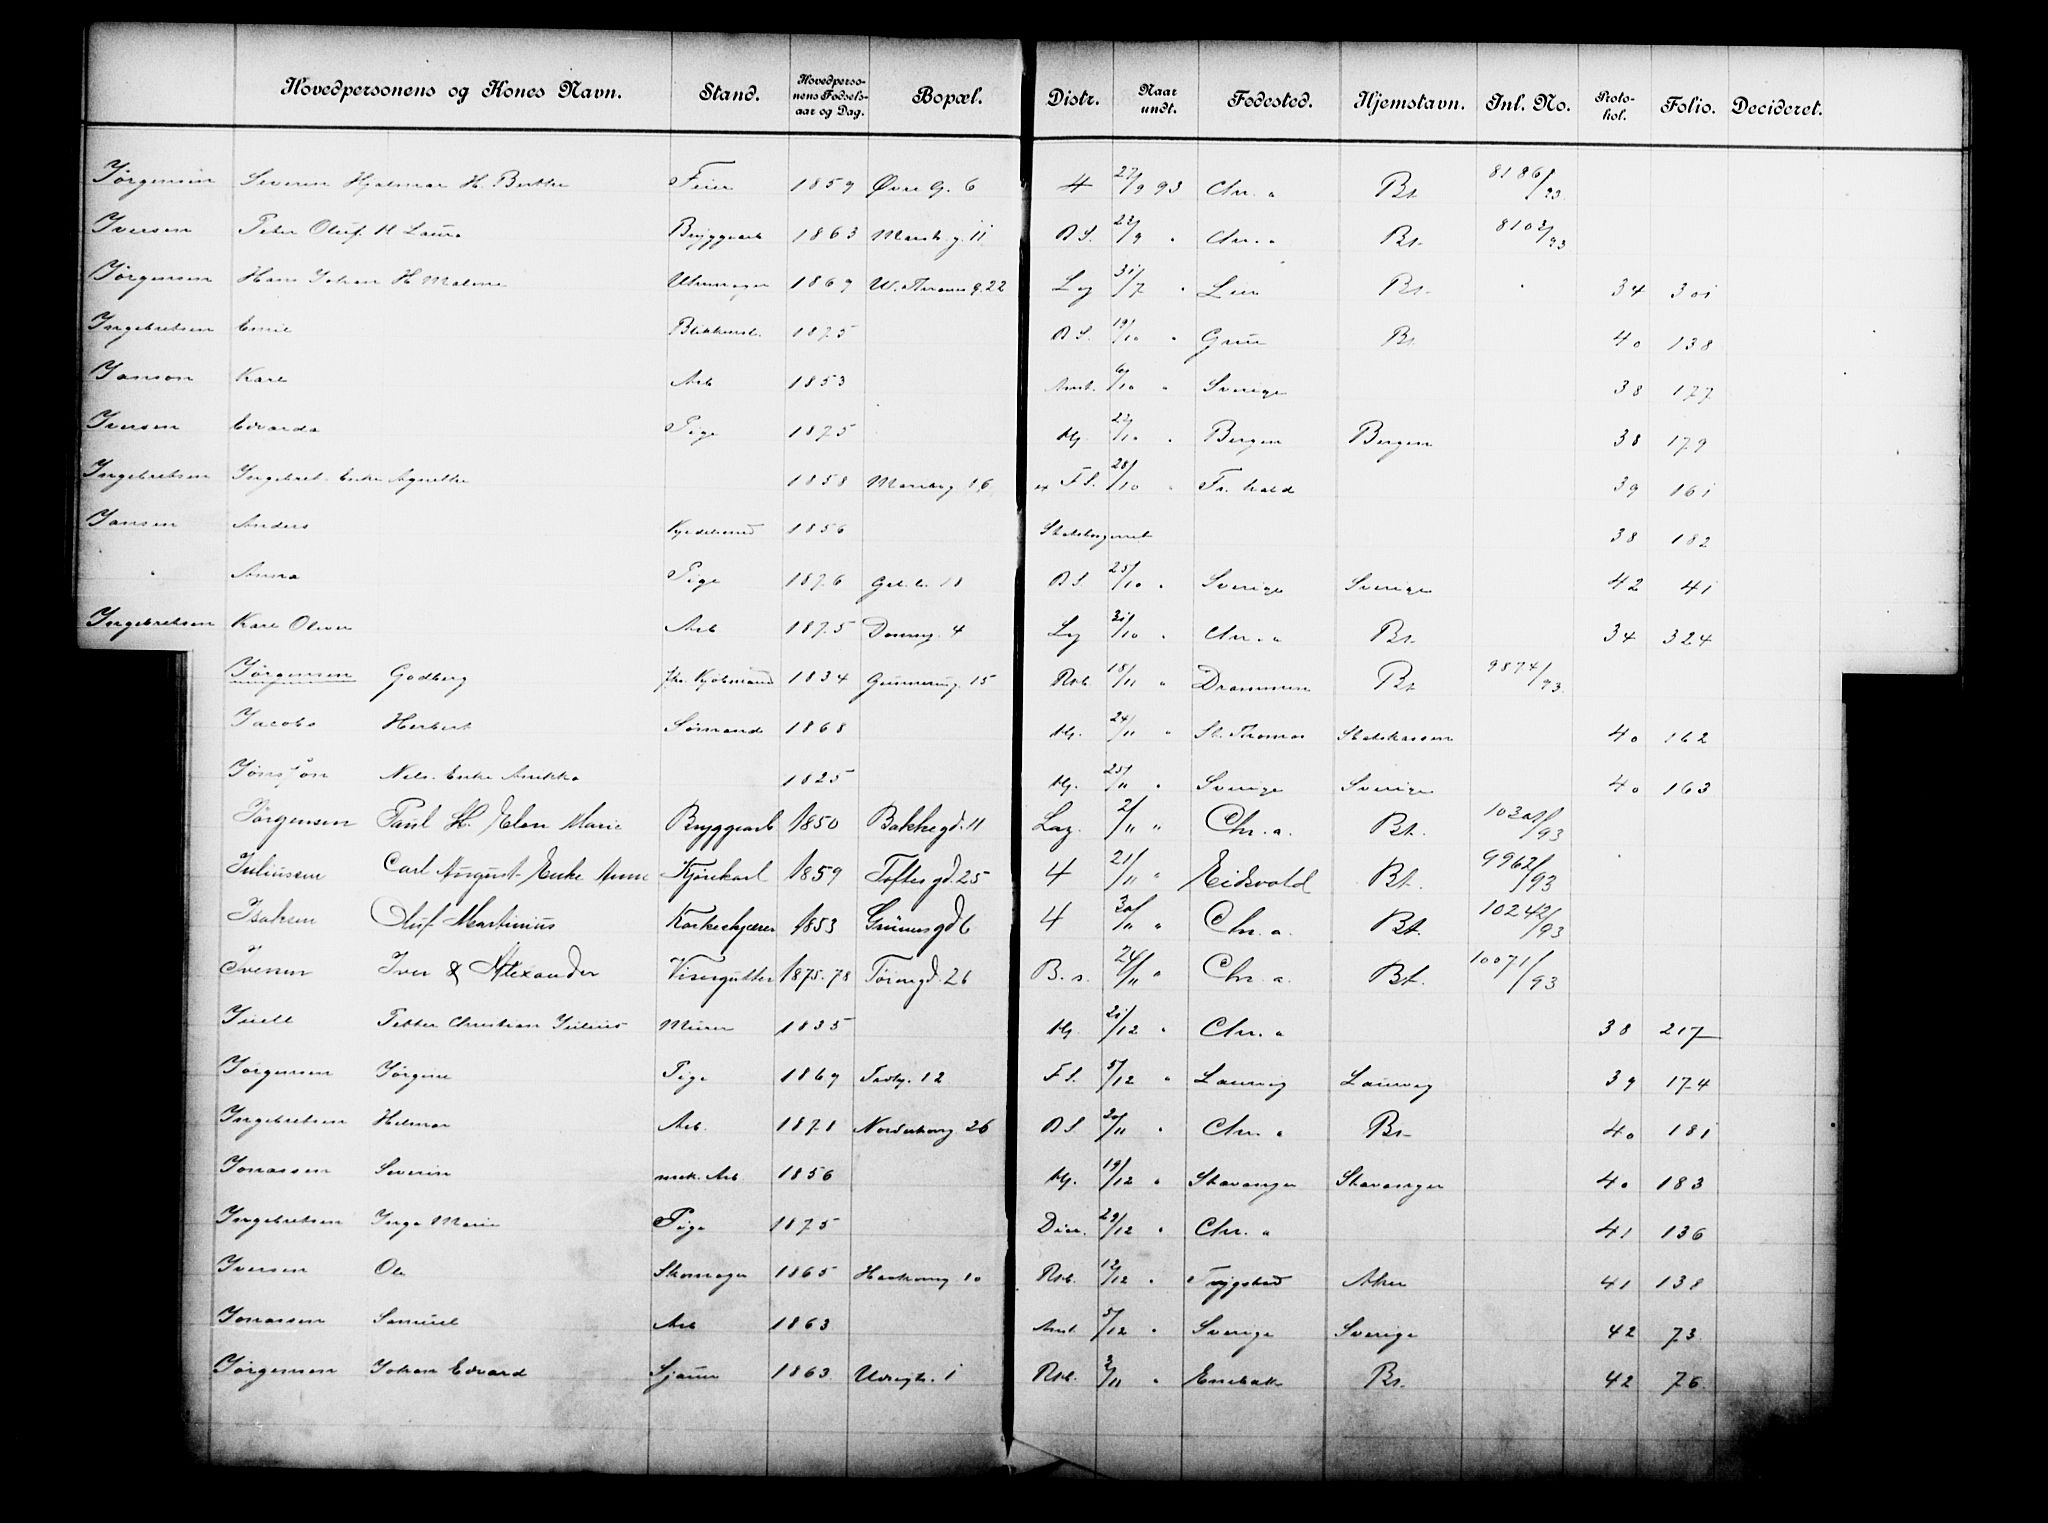 Hovedpersonens og Kones Navn. Stand. Hovedperso-nens Fødsels-aar og Dag. Bopæl. Distr. Naar undt. Fødested. Hjemstavn. Inl. No. Proto-kol. Folio. Decideret.
Jørgensen Severin Hjalmar H. Berthe Feier 1859 Øvre G. 6 4 27/9 93 Chr. a Bt. 8186/93
Iversen Peter Oluf H Laura Bryggearb 1863 Mark g. 11 B S. 22/9 " Chr. a Bt. 8102/93
Jørgensen Hans Johan H Malene Uhrmager 1869 W. Thranes g. 22 Lg 31/7 " Lier Bt. 34 301
Ingebretsen Emil Blikkensl. 1875 B S. 19/10 " Grue Bt 40 138
Janson Karl Arb 1853 Amt. 6/10 " Sverige 38 177
Iversen Edvarda Pige 1875 Hj 27/10 " Bergen Bergen 38 179
Ingebretsen Ingebret. Enke Agnethe 1858 Maribg 16 F S. 28/10 " Fr. hald 39 161
Jansen Anders Kjedelsmed 1856 38 182
" Anna Pige 1876 18 B S. 25/10 " Sverige Sverige 42 41
Ingebretsen Karl Oliver Arb 1875 4 Lg 31/10 " Chr. a Bt. 34 324
Jørgensen Godberg fhv. Kjøbmand 1834 Gunnerusg. 15 Rst. 18/11 " Drammen Bt 9874/93
Jacobs Herbert Sømand 1868 Hj. 24/11 " St. Thomas Statskassen 40 162
Jönsson Nels. Enke Annikka 1825 Hj. 25/11 " Sverige Sverige 40 163
Jørgensen Paul H. Elen Marie Bryggearb 1850 Bakkegd. 11 Lag. 2/11 " Chr. a. Bt. /93
Juliussen Carl August Enke Anne Kjørekarl 1859 Toftesgd. 25 4 21/11 " Eidsvold Bt. 9962/93
Isaksen Oluf Martinius Korkeskjærer 1853 Grünersgd 6 4 30/11 " Chr. a. Bt. 10242/93
Iversen Iver & Alexander Visergutter 1875-78 26 B. s. 24/11 " Chr. a. Bt. 10071/93
Juell Petter Christian Julius Murer 1835 Hj. 21/12 " Chr. a 38 217
Jørgensen Jørgine Pige 1869 12 F S. 5/12 " Laurvig Laurvig 39 174
Ingebretsen Helmar Arb. 1871 Nordahlsbrg. 26 B S. 20/11 " Chr. a Bt 40 181
Jonassen Severin mek. Arb. 1856 Hj. 19/12 " Stavanger Stavanger 40 183
Ingebretsen Inga Marie Pige 1875 29/12 " Chr. a 41 136
Iversen Ole Skomager 1865 10 Rst. 12/12 " Trygstad Aker 41 138
Jonassen Samuel Arb 1863 Amt. 5/12 " Sverige Sverige 42 73
Jørgensen Johan Edvard Sjauer 1863 1 Rst. 2/11 " Enebak Bt. 42 76